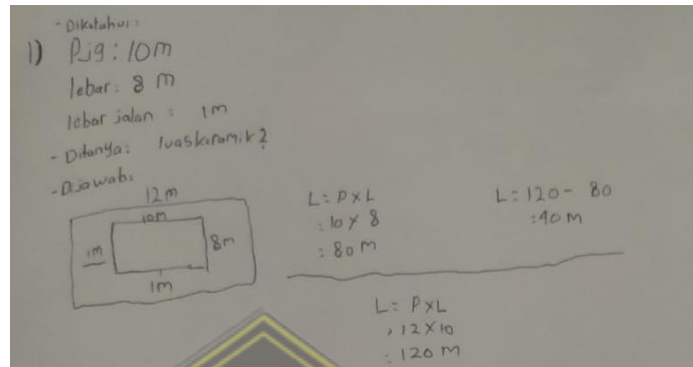 - Diketahui:
1) Pjg: 10m
lebar: 8 m
lebar jalan : 1m
- Ditanya: luas keramik?
- Dijawab:
12m
10m
1m
8m
1m
L = P x L
: 10 x 8
: 80 m
L: 120 - 80
: 40 m
L = P x L
, 12 x 10
: 120 m